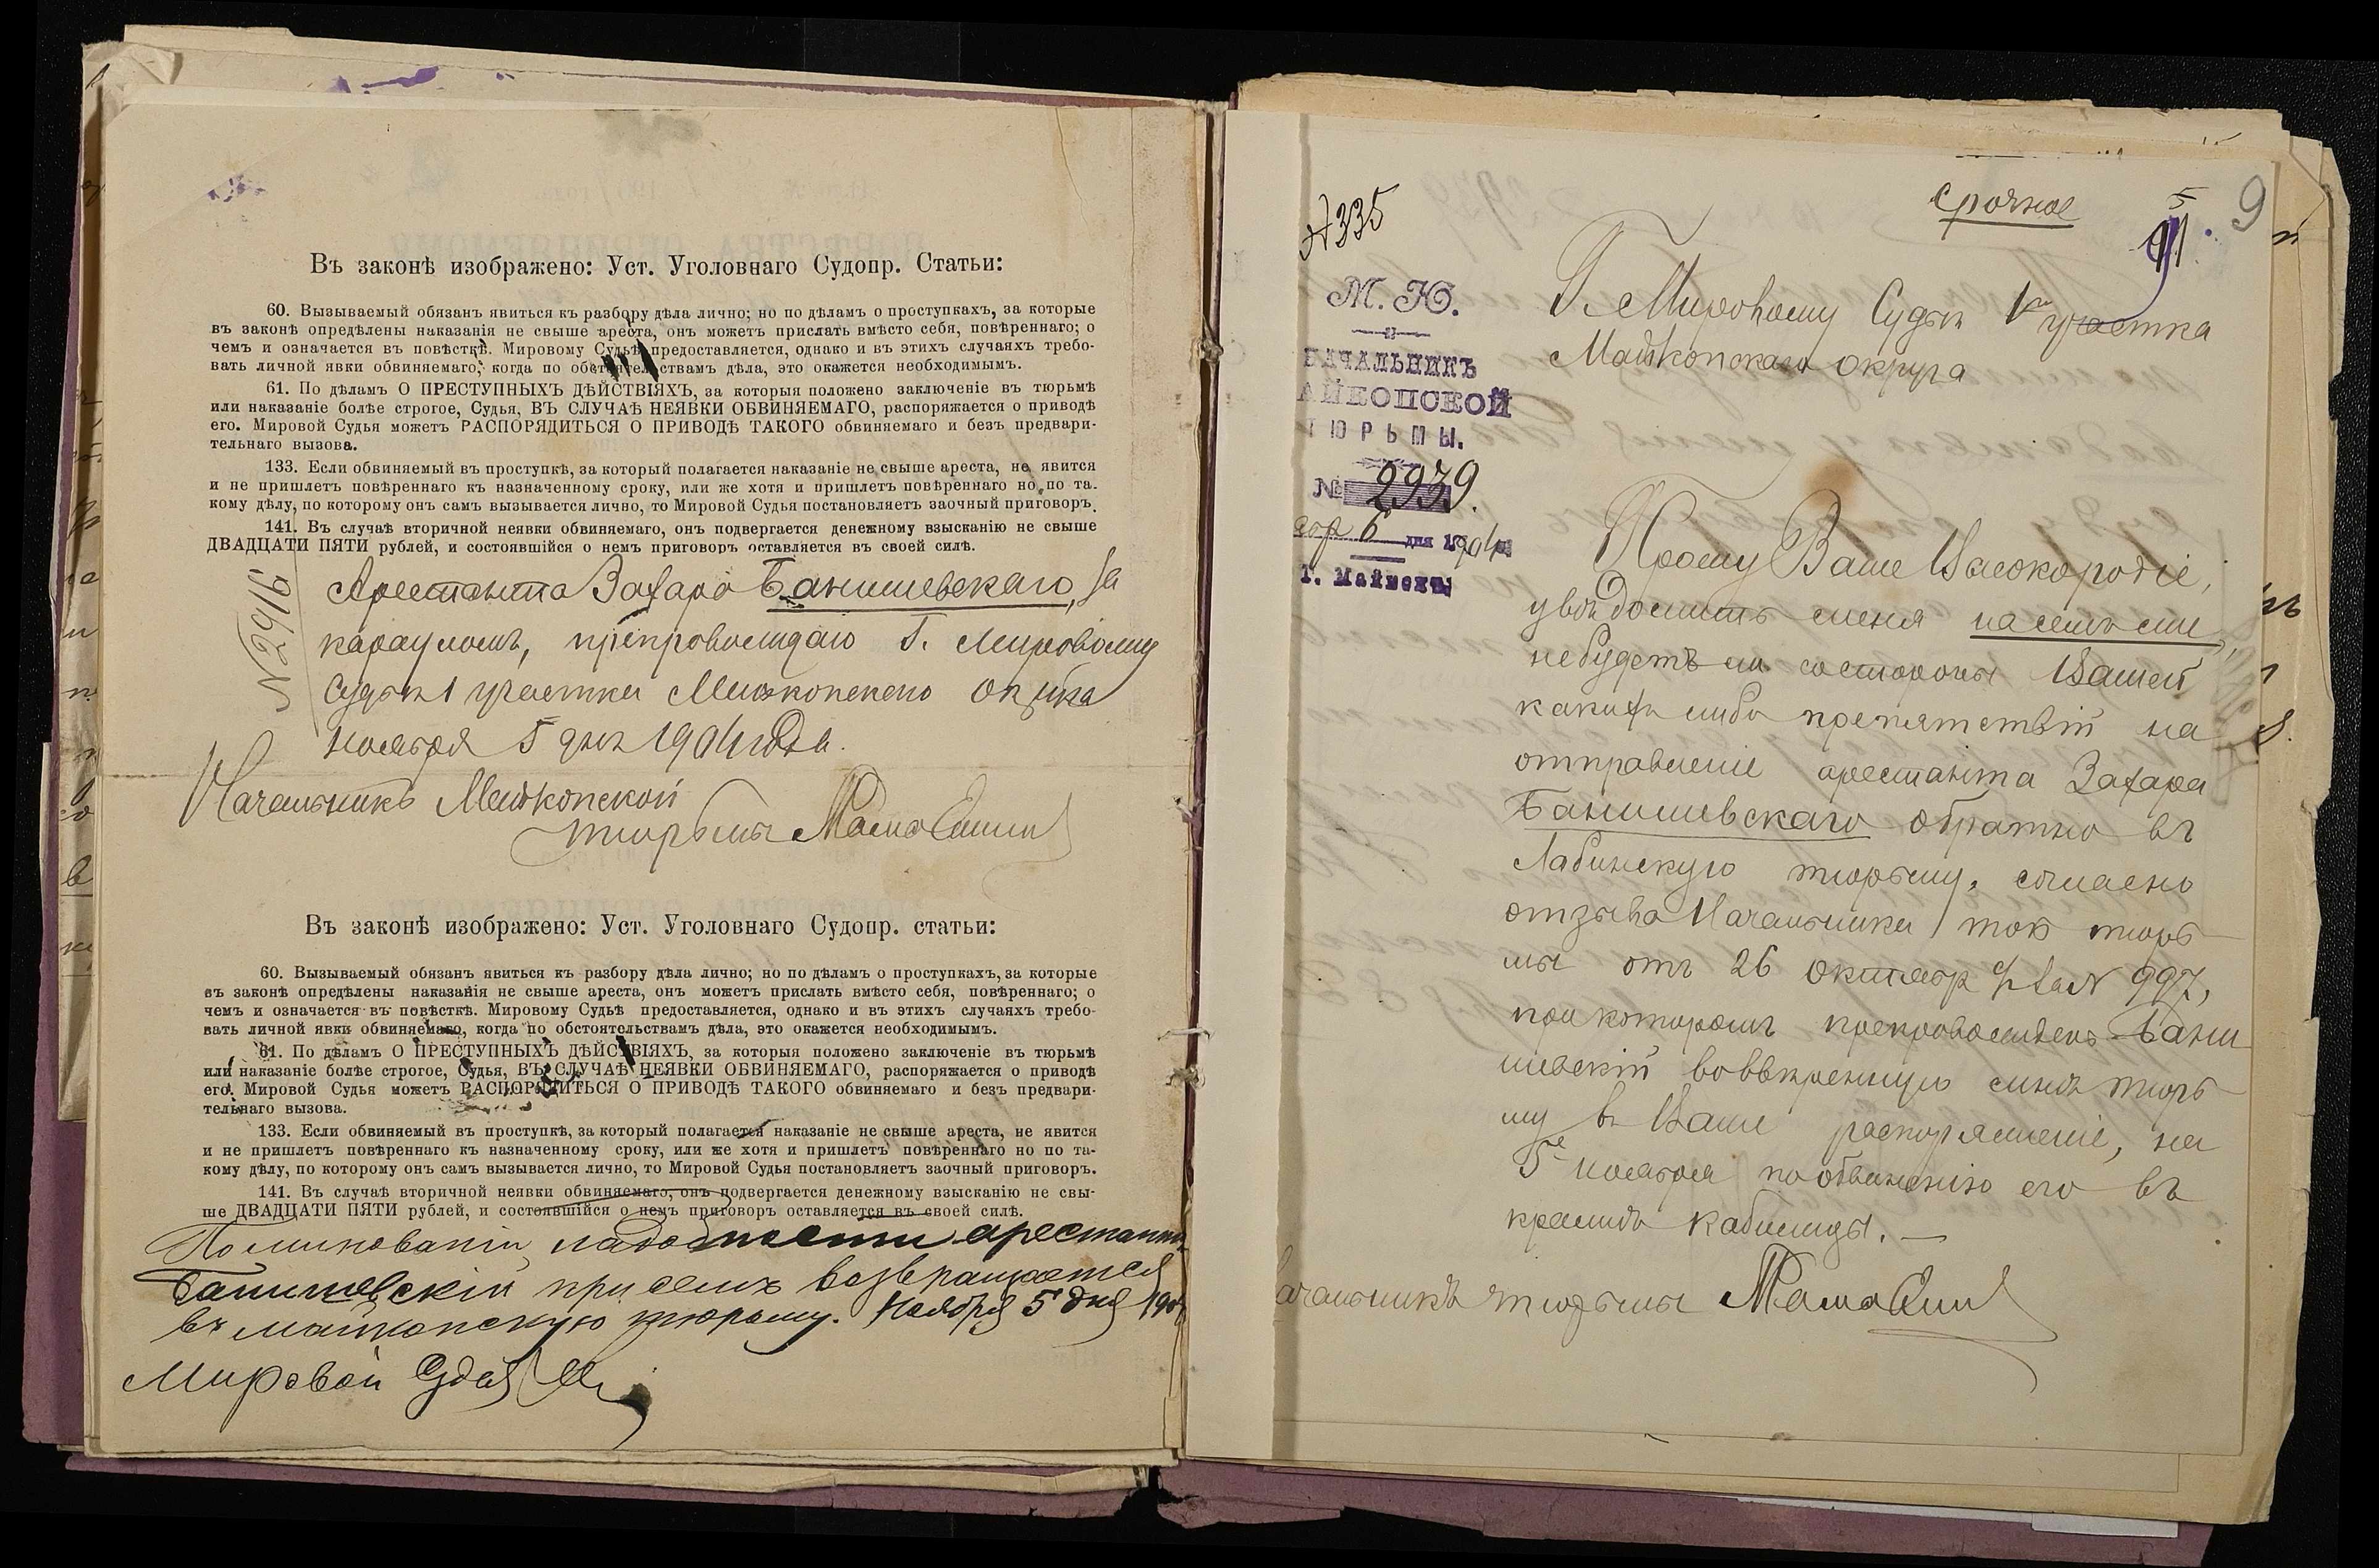 Въ законѣ изображено: Уст. Уголовнаго Судопр. Статьи:
60. Вызываемый обязанъ явиться къ разбору дѣла лично; но по дѣламъ о проступкахъ, за которые
въ законѣ опредѣлены наказанія не свыше ареста, онъ можетъ прислать вмѣсто себя, повѣреннаго; о
чемъ и означается въ повѣсткѣ. Мировому Судьѣ предоставляется, однако и въ этихъ случаяхъ требо-
вать личной явки обвиняемаго, когда по обстоятельствамъ дѣла, это окажется необходимымъ.
61. По дѣламъ О ПРЕСТУПНЫХЪ ДѢЙСТВІЯХЪ, за которыя положено заключеніе въ тюрьмѣ
или наказаніе болѣе строгое, Судья, ВЪ СЛУЧАѢ НЕЯВКИ ОБВИНЯЕМАГО, распоряжается о приводѣ
его. Мировой Судья можетъ РАСПОРЯДИТЬСЯ О ПРИВОДѢ ТАКОГО обвиняемаго и безъ предвари-
тельнаго вызова.
133. Если обвиняемый въ проступкѣ, за который полагается наказаніе не свыше ареста, не явится
и не пришлетъ повѣреннаго къ назначенному сроку, или же хотя и пришлетъ повѣреннаго но по та-
кому дѣлу, по которому онъ самъ вызывается лично, то Мировой Судья постановляетъ заочный приговоръ.
141. Въ случаѣ вторичной неявки обвиняемаго, онъ подвергается денежному взысканію не свыше
ДВАДЦАТИ ПЯТИ рублей, и состоявшійся о немъ приговоръ оставляется въ своей силѣ.
N 2916
Арестанта Захара Банишевскаго, за
карауломъ, препровождаю Г. Мировому
Судьѣ 1 участка Майкопскаго округа
ноября 5 дня 1904 года.
Начальникъ Майкопской
тюрьмы
Въ законѣ изображено: Уст. Уголовнаго Судопр. статьи:
60. Вызываемый обязанъ явиться къ разбору дѣла лично; но по дѣламъ о проступкахъ, за которые
въ законѣ опредѣлены наказанія не свыше ареста, онъ можетъ прислать вмѣсто себя, повѣреннаго; о
чемъ и означается въ повѣсткѣ. Мировому Судьѣ предоставляется, однако и въ этихъ случаяхъ требо-
вать личной явки обвиняемаго, когда по обстоятельствамъ дѣла, это окажется необходимымъ.
61. По дѣламъ О ПРЕСТУПНЫХЪ ДѢЙСТВІЯХЪ, за которыя положено заключеніе въ тюрьмѣ
или наказаніе болѣе строгое, Судья, ВЪ СЛУЧАѢ НЕЯВКИ ОБВИНЯЕМАГО, распоряжается о приводѣ
его. Мировой Судья можетъ РАСПОРЯДИТЬСЯ О ПРИВОДѢ ТАКОГО обвиняемаго и безъ предвари-
тельнаго вызова.
133. Если обвиняемый въ проступкѣ, за который полагается наказаніе не свыше ареста, не явится
и не пришлетъ повѣреннаго къ назначенному сроку, или же хотя и пришлетъ повѣреннаго но по та-
кому дѣлу, по которому онъ самъ вызывается лично, то Мировой Судья постановляетъ заочный приговоръ.
141. Въ случаѣ вторичной неявки обвиняемаго, онъ подвергается денежному взысканію не свы-
ше ДВАДЦАТИ ПЯТИ рублей, и состоявшійся о немъ приговоръ оставляется въ своей силѣ.
По минованіи надобности арестантъ
Банишевскій при семъ возвращается
въ майкопскую тюрьму. Ноября 5 дня 1904
Мировой Судья
срочное
9
5
11
N335
М. Ю.
НАЧАЛЬНИКЪ
АЙКОПСКОЙ
ТЮРЬМЫ.
№ 2939.
ября 6 дня 1904
г. Майкопъ
Г. Мировому Судьѣ 1го участка
Майкопскаго округа
Прошу Ваше Высокородіе,
увѣдомить меня на семъ же,
не будетъ ли со стороны Вашей
какихъ либо препятствій на
отправленіе арестанта Захара
Банишевскаго обратно въ
Лабинскую тюрьму, согласно
отзыва Начальника той тюрь-
мы отъ 26 октября за N 997,
при которомъ препровожденъ Бани-
шевскій во ввѣренную мнѣ тюрь-
му въ Ваше распоряженіе, на
5е ноября по обвиненію его въ
кражѣ кобылицы. —
Начальникъ тюрьмы